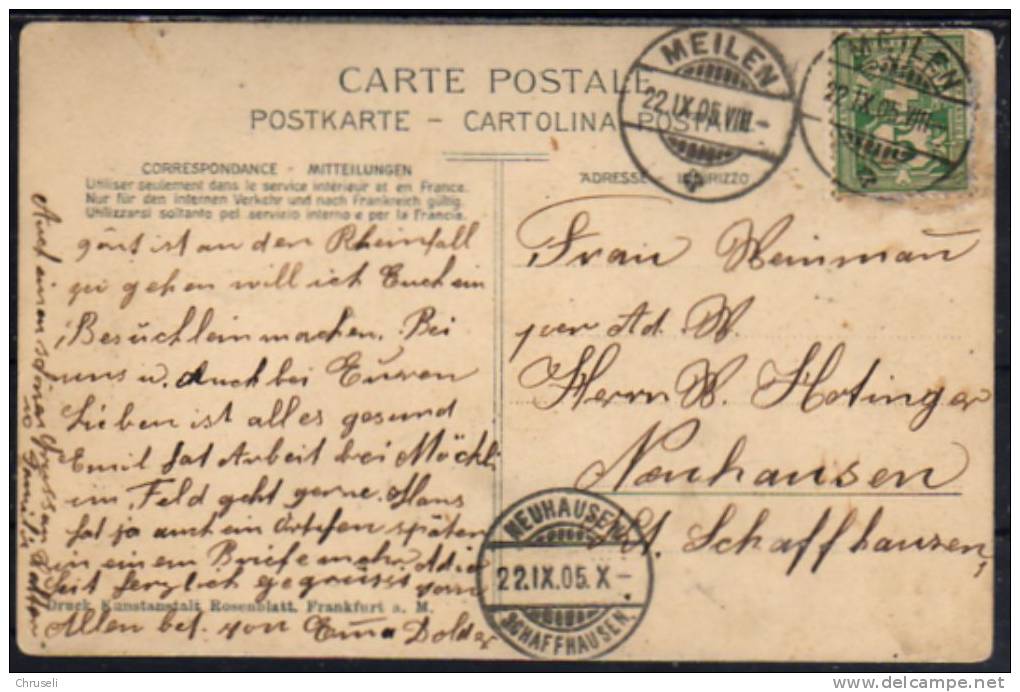 CARTE POSTALE
POSTKARTE - CARTOLINA POSTALE
CORRESPONDANCE - MITTEILUNGEN
Utiliser seulement dans le service intérieur et en France.
Nur für den internen Verkehr und nach Frankreich gültig.
Utilizzarsi soltanto pel servizio interno e per la Francia.
ADRESSE - INDIRIZZO
MEILEN
22.IX.05.VIII.-
MEILEN
22.IX.05.VIII-
ist an den Rheinfall
zu gehen will ich Euch ein
Besüchlein machen. Bei
uns u. Auch bei Euren
Lieben ist alles gesund
Emil hat Arbeit bei Möckli
im Feld geht gerne. Hans
hat ja auch ein später
in einem Briefe mehr. Adie
Seit herzlich gegrüsst vom
Allen bes. von Emma Dolder
Druck Kunstanstalt Rosenblatt, Frankfurt a. M.
Auf einen
Frau Weinmann
per Ad. W.
Herrn W. Hotinger
Neuhausen
Kt. Schaffhausen
NEUHAUSEN
22.IX.05.X-
SCHAFFHAUSEN.
Chruseli
delcampe.net